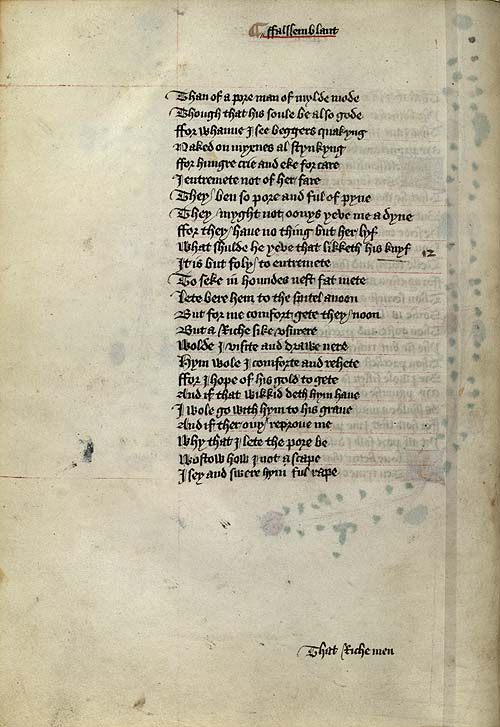 ffalssemblant
Than of a pore man of mylde mode
Though that his soule be also gode
ffor whanne I see beggers quakyng
Naked on myxnes al stynkyng
ffor hungre crie and eke for care
I entremete not of her fare
They ben so pore and ful of pyne
They myght not oonys yeve me a dyne
ffor they haue no thing but her lyf
What shulde he yeve that likketh his knyf
12
It is but foly to entremete
To seke in houndes nest fat mete
Lete bere hem to the spitel anoon
But for me comfort gete they noon
But a Riche sike vsurere
Wolde I visite and drawe nere
Hym wole I comforte and rehete
ffor I hope of his gold to gete
And if that wikkid deth hym haue
I wole go with hym to his graue
And if ther ony reproue me
Why that I lete the pore be
Wostow how I not a scape
I sey and swere hym ful rape
That Riche men